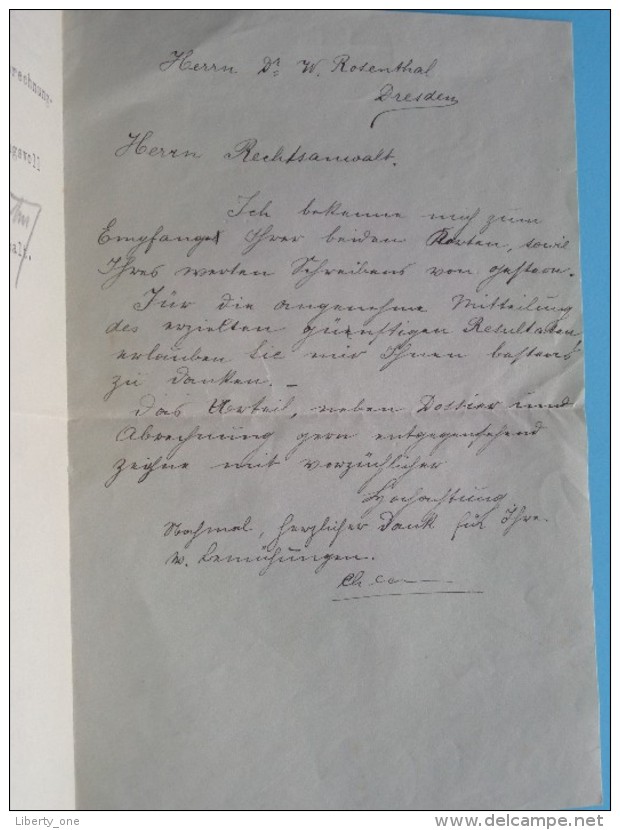 rechnung.
gsvoll
alt.
Herrn Dr. W. Rosenthal
Dresden
Herrn Rechtsanwalt.
Ich bekenne mich zum
Empfange Ihrer beiden Karten, sowie
Ihres werten Schreibens von gestern.
Für die angenehme Mitteilung
des erzielten günstigen Resultates
erlauben Sie mir Ihnen bestens
zu danken. –
Das Urteil, neben Dossier und
Abrechnung gern entgegensehend
zeichne mit vorzüchlicher
Hochachtung
Nochmal, herzlicher Dank für Ihre
w. Bemühungen.
Liberty_one
www.delcampe.net